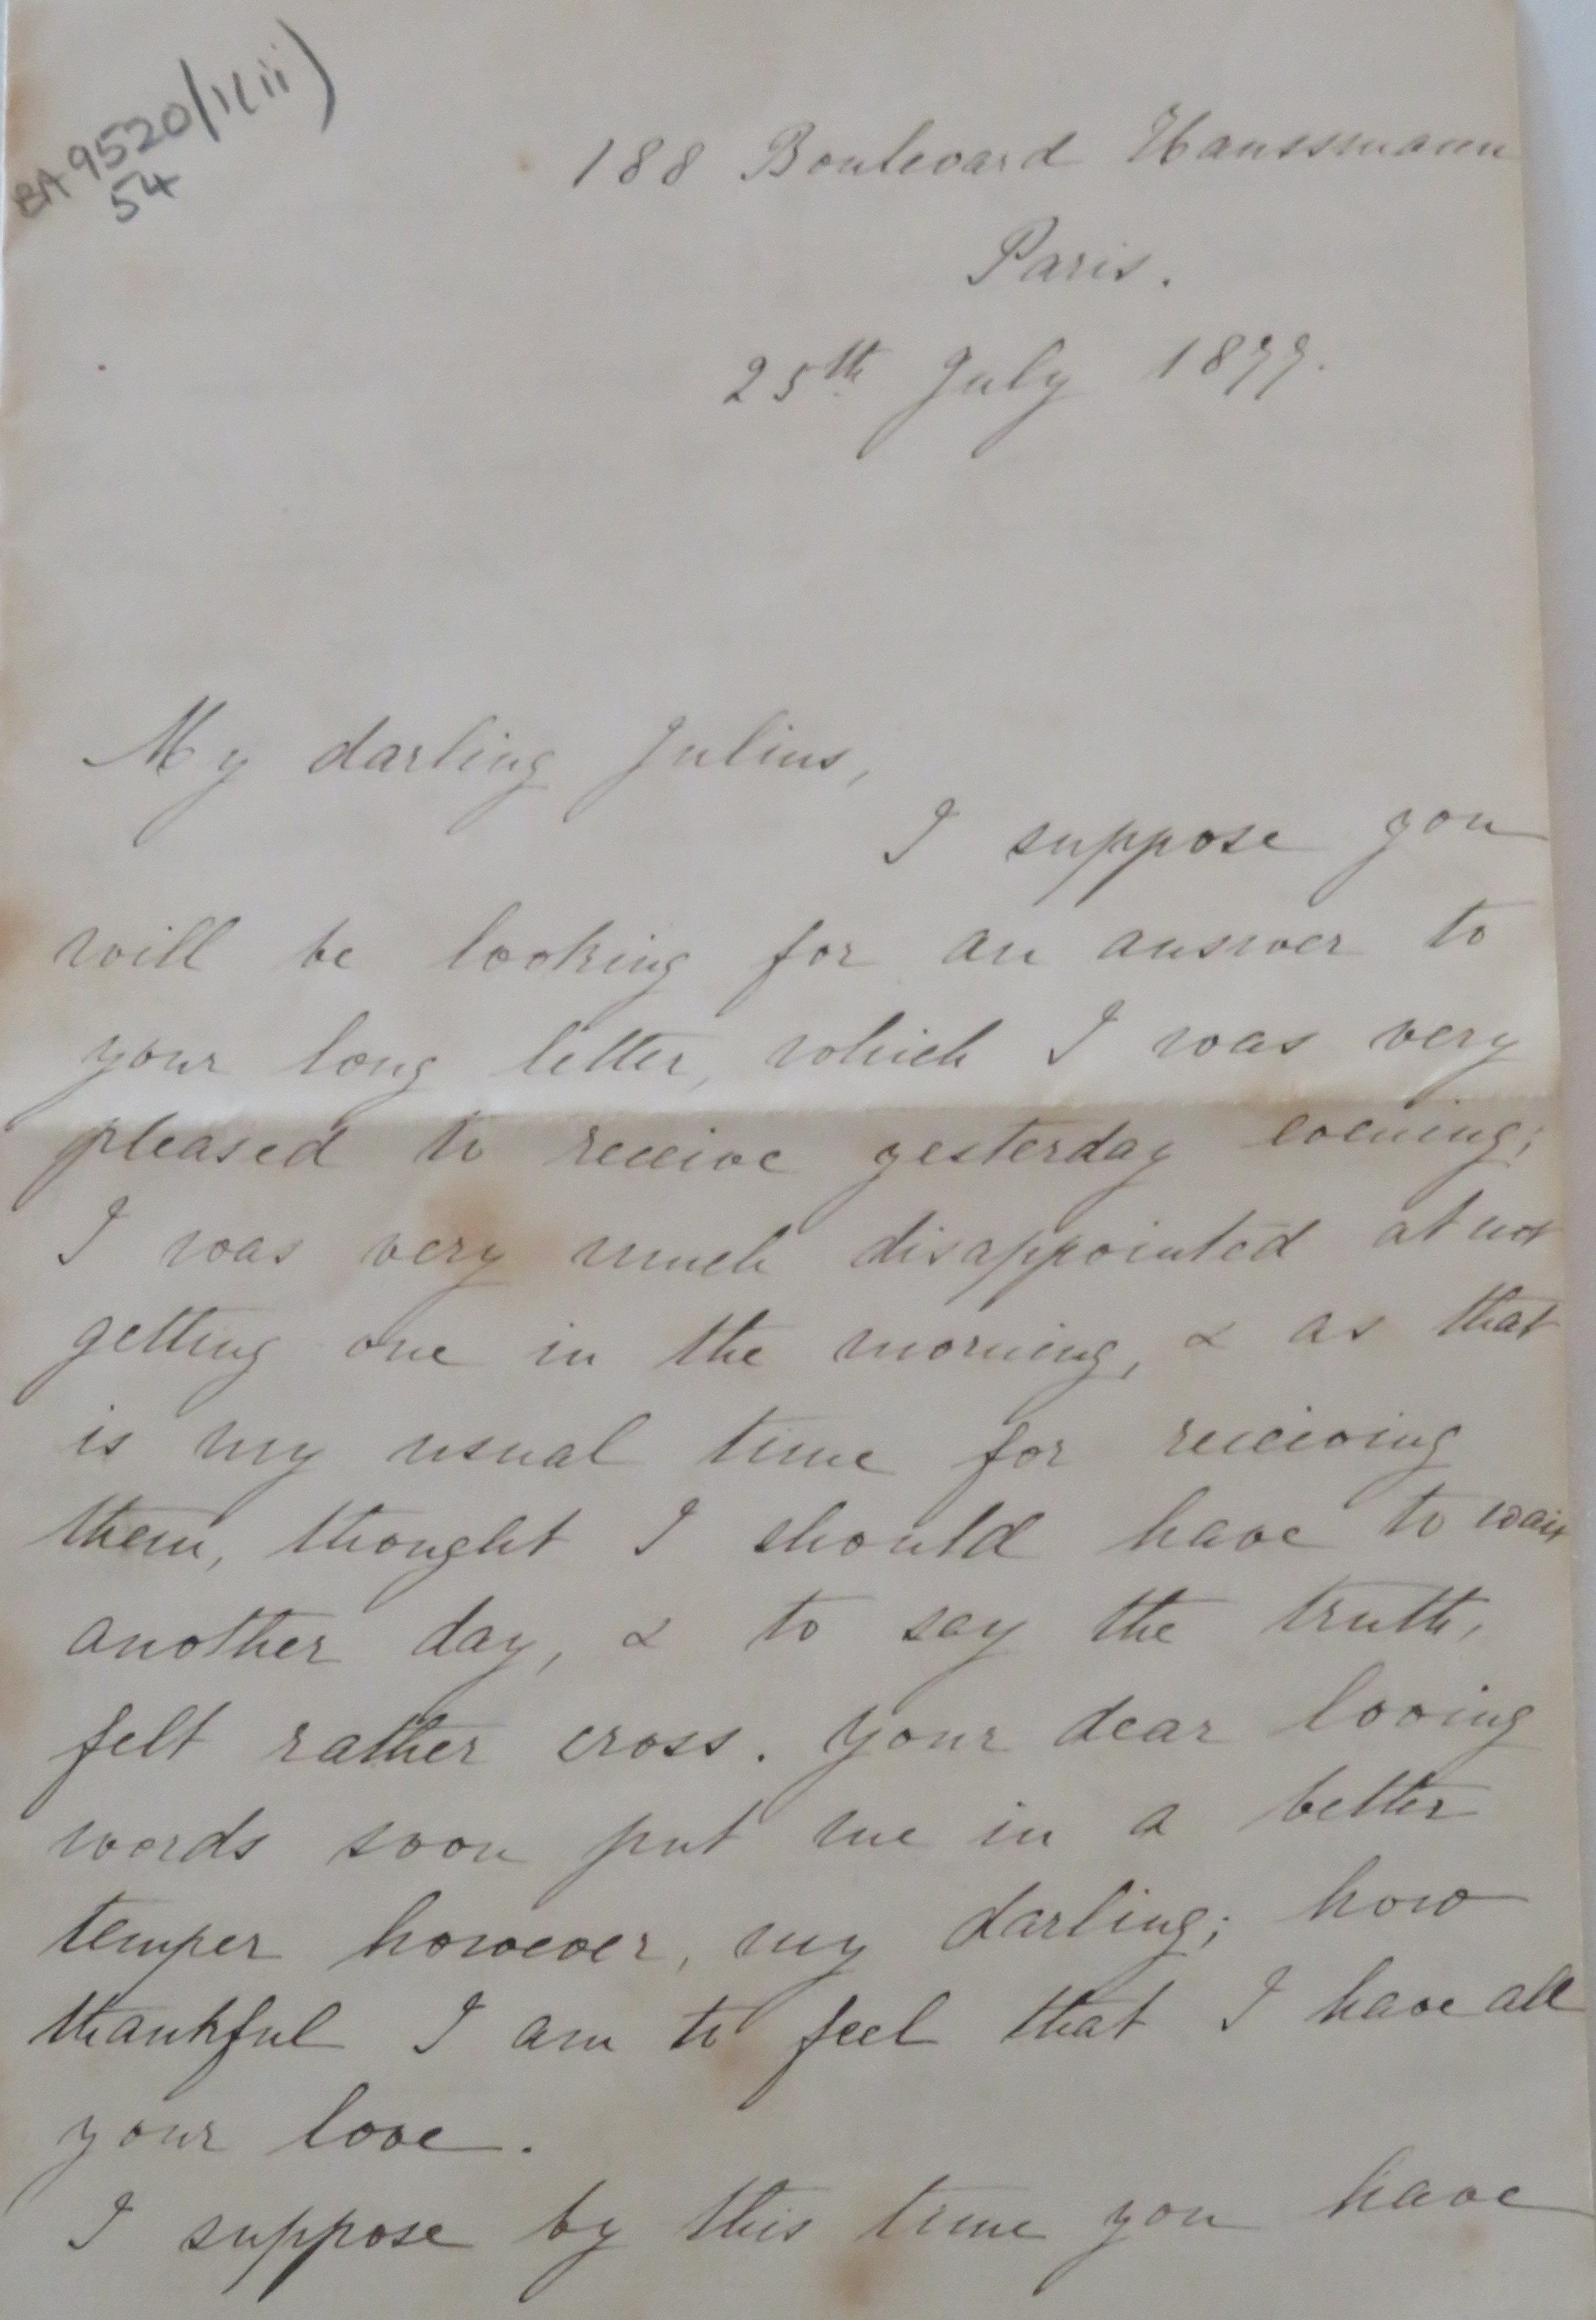 BA 9520/1(ii)
54
188 Boulevard Haussmann
Paris.
25th July 1877.
My darling Julius,
I suppose you
will be looking for an answer to
your long letter, which I was very
pleased to receive yesterday evening;
I was very much disappointed at not
getting one in the morning, & as that
is my usual time for receiving
them, thought I should have to wait
another day, & to say the truth,
felt rather cross. Your dear loving
words soon put me in a better
temper however, my darling; how
thankful I am to feel that I have all
your love.
I suppose by this time you have